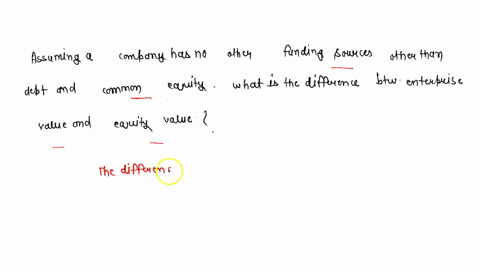 Assuming a company has no other funding sources other than
debt and common equity. what is the difference btw. enterprise
value and equity value ?
The differenc